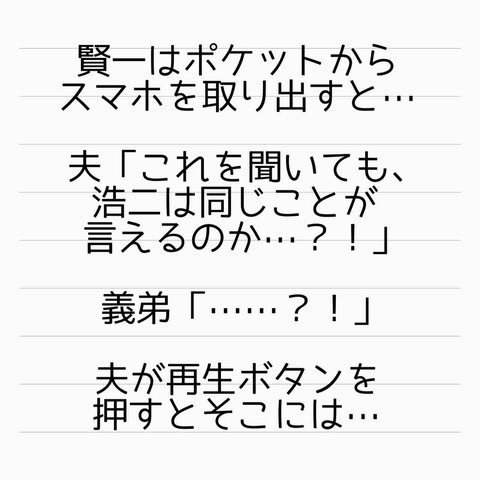 賢一はポケットから
スマホを取り出すと…
夫「これを聞いても、
浩二は同じことが
言えるのか…？！」
義弟「……？！」
夫が再生ボタンを
押すとそこには…